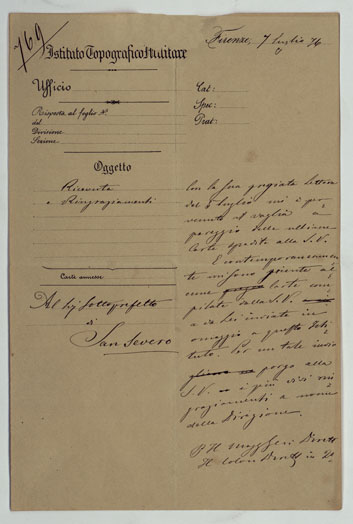 769
Istituto Topografico Militare
Firenze, 7 Luglio 76
Ufficio
Risposta al foglio N.
del
Divisione
Sezione
Cat:
Spec:
Prat:
Oggetto
Ricevuta
e Ringraziamenti
Carte annesse
Al Sig Sottoprefetto
di
San Severo
Con la sua pregiata lettera
del Luglio mi è per
venuto il vaglia a
pareggio delle ultime
Carte spedite alla S.V.
E contemporaneamen
te mi sono giunte al
cune carte com
pilate dalla S.V.
e da Lei inviate in
omaggio a questo Isti
tuto. Per un tale invio
porgo alla
S.V. i più vivi rin
graziamenti a nome
della Direzione.